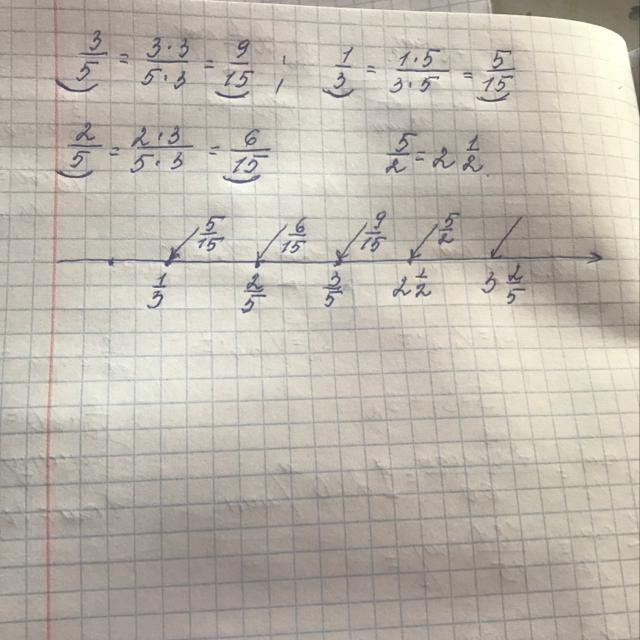 3/5 = 3·3/5·3 = 9/15 ; 1/3 = 1·5/3·5 = 5/15
2/5 = 2·3/5·3 = 6/15 5/2 = 2 1/2.
5/15 6/15 9/15 5/2
1/3 2/5 3/5 2 1/2 3 2/5